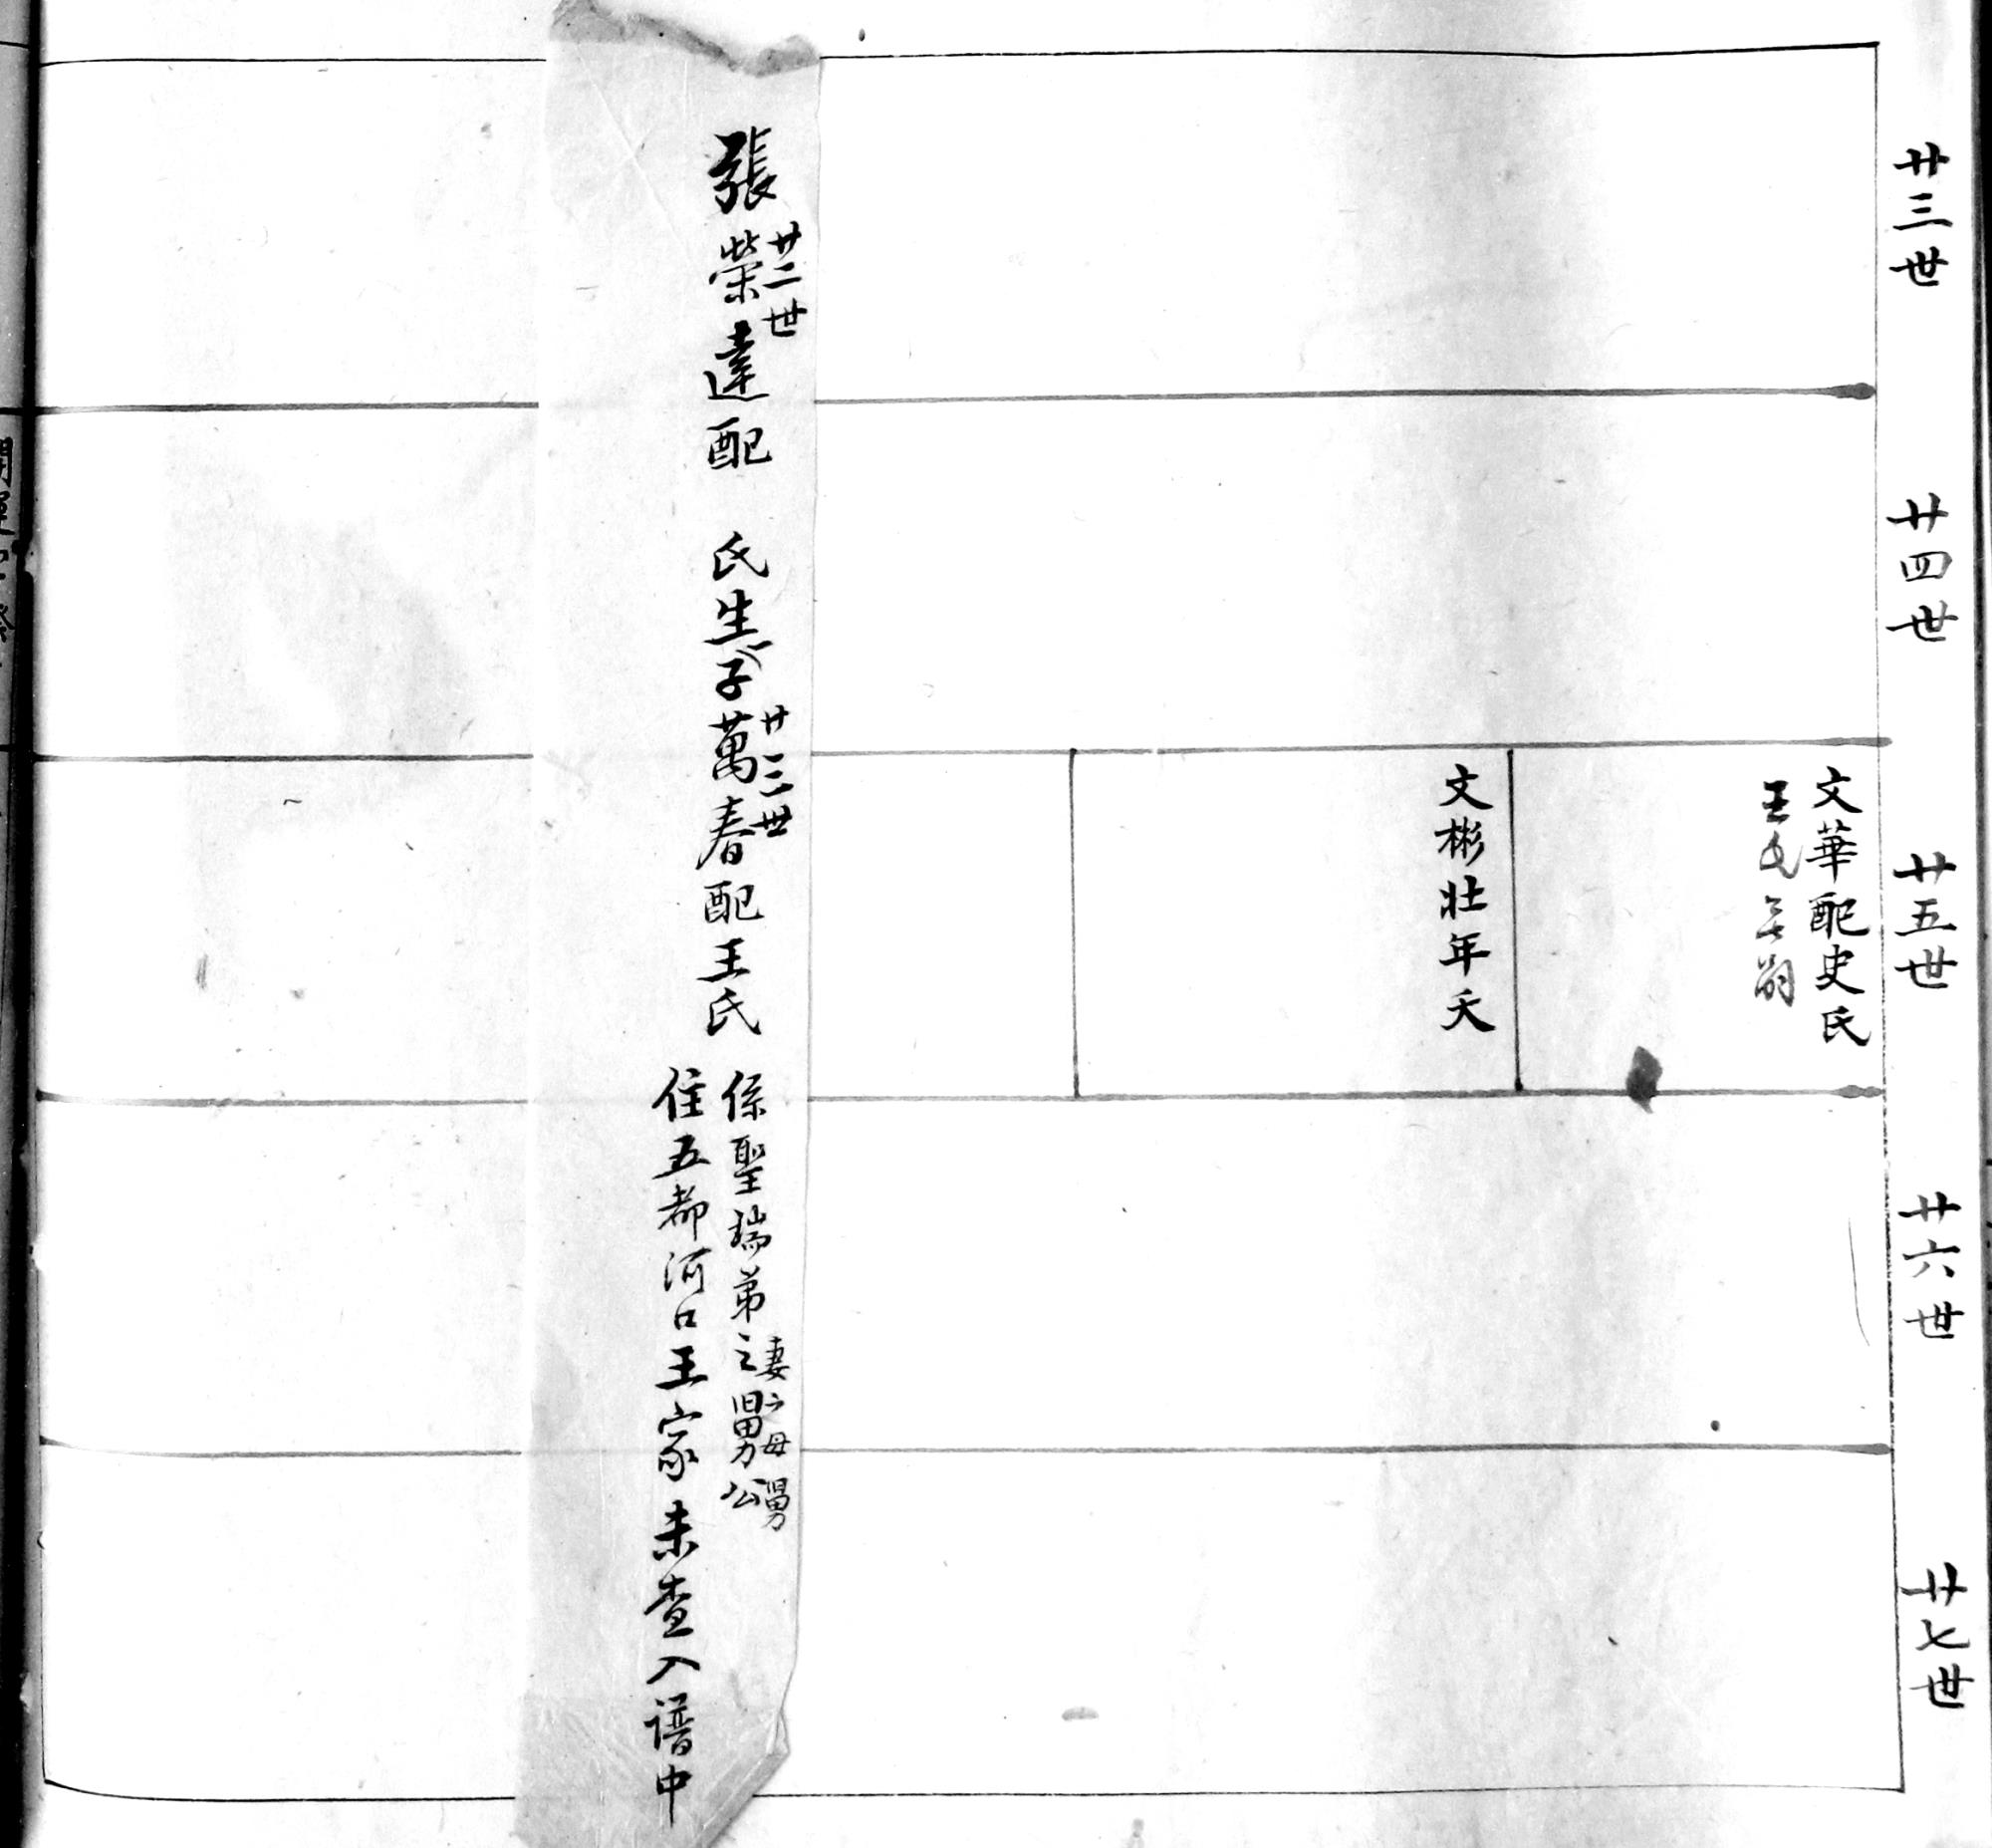 廿三世
廿四世
廿五世
廿六世
廿七世
文華配史氏
王氏無嗣
文彬壯年夭
廿二世
張榮達配 氏生子萬春配王氏
廿三世
係聖瑞弟之舅公
妻之母舅
住五都河口王家未查入譜中